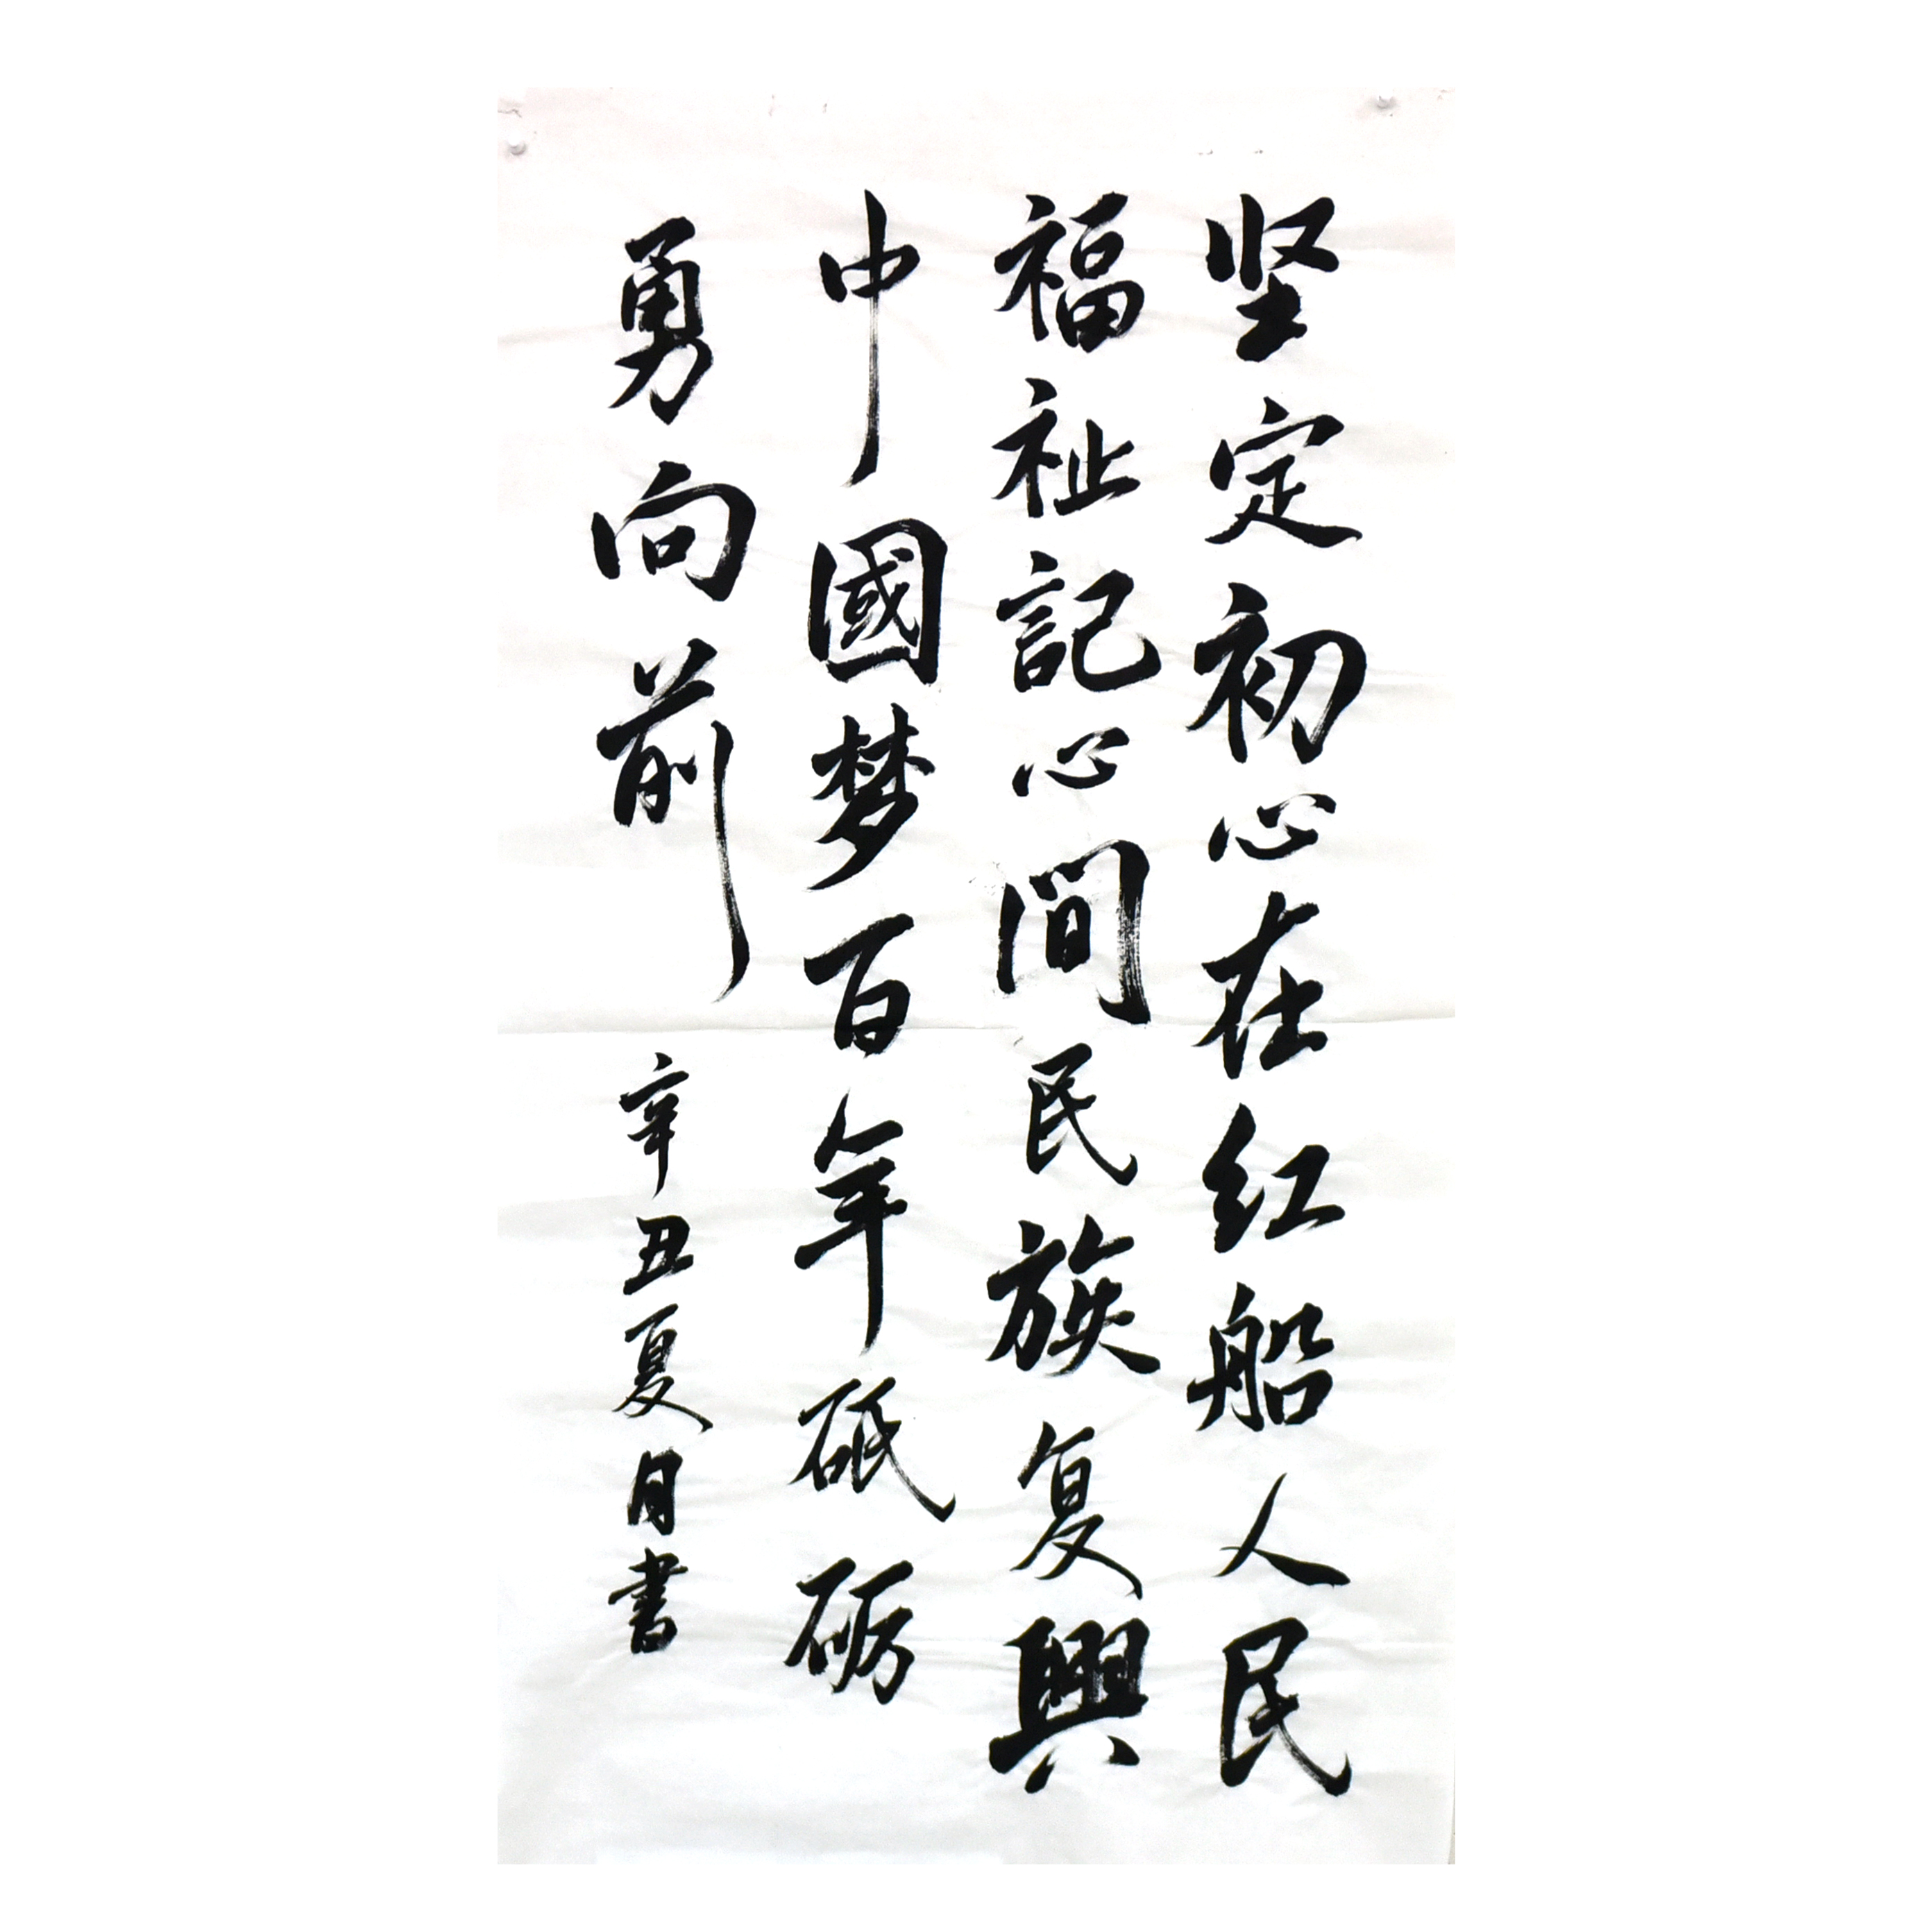 坚定初心在红船人民
福祉記心间民族复興
中國梦百年砥砺
勇向前
辛丑夏月書